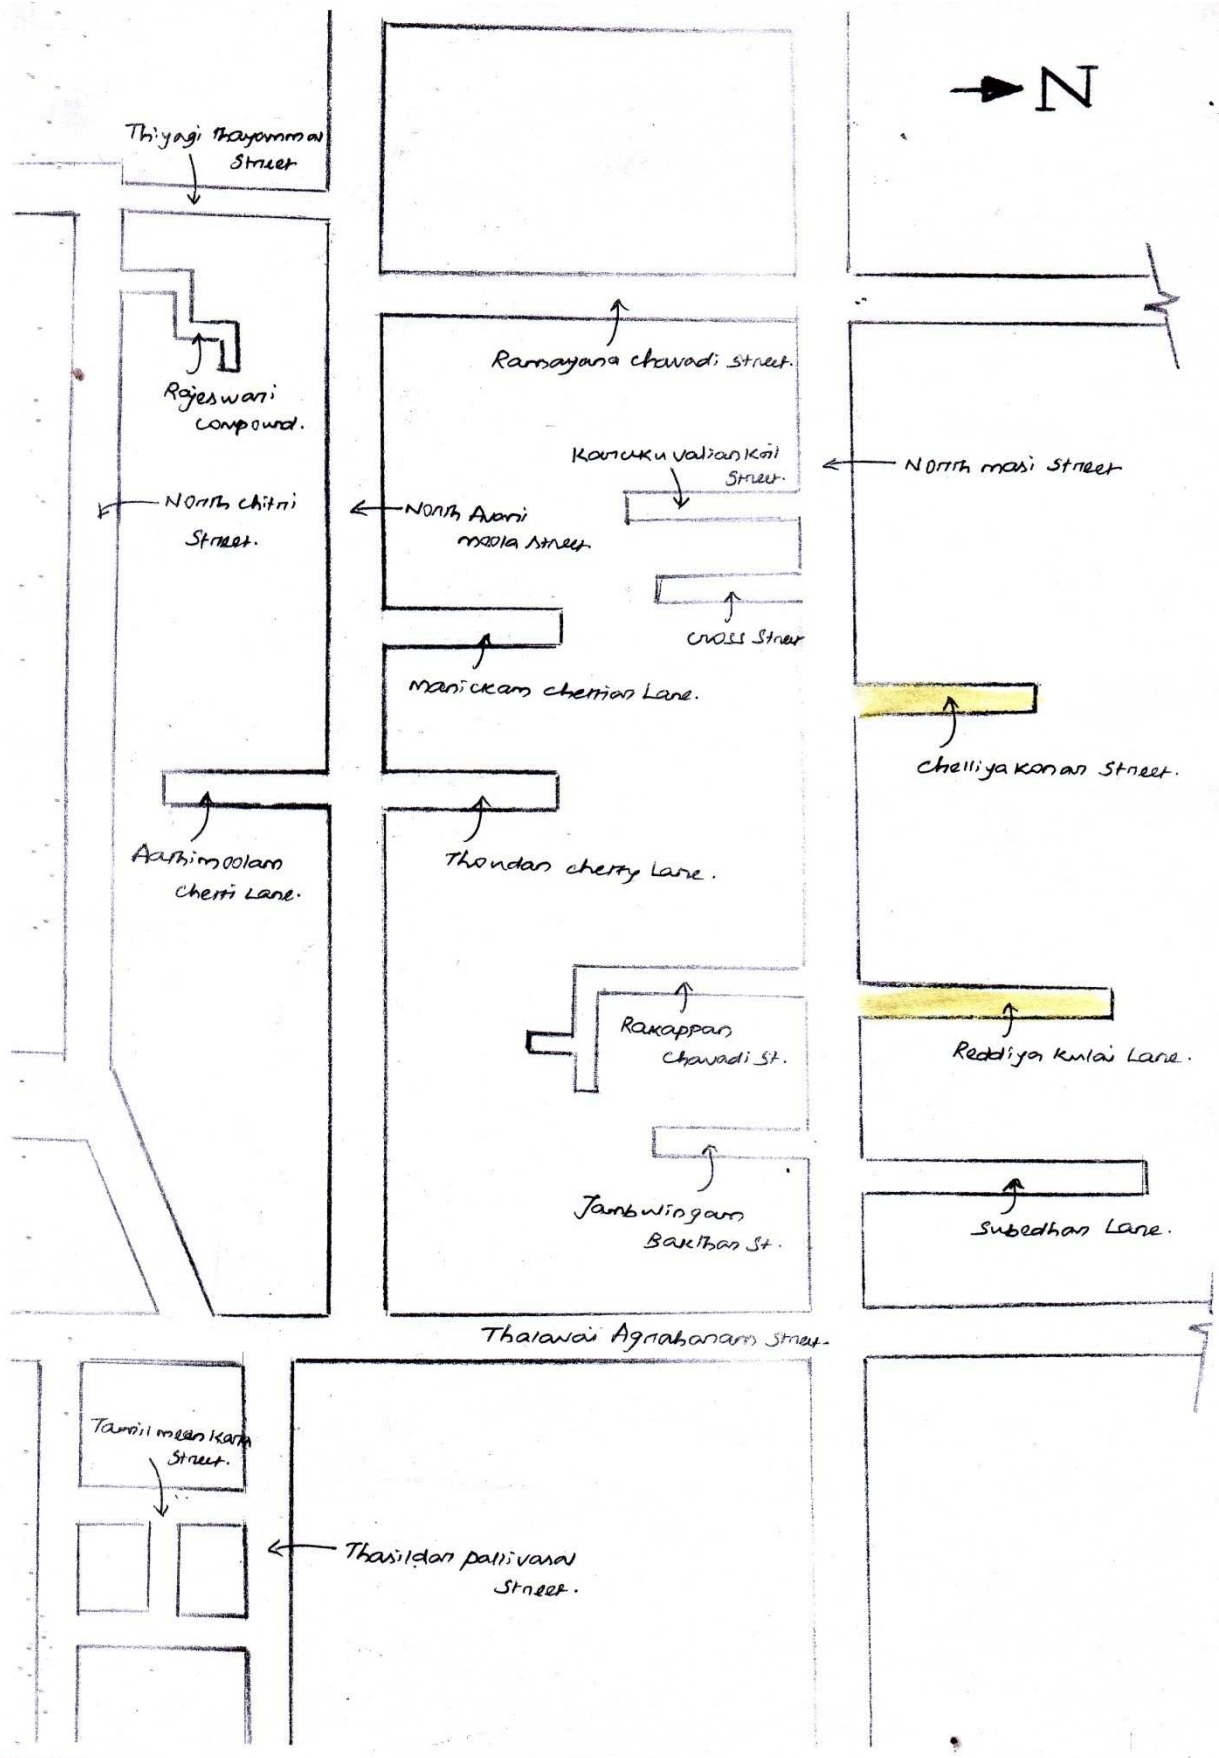 N
Thiyagi Thayammal
Street
Ramayana chavadi street.
Rajeswari
compound.
Karukuvaliankoil
Street.
North masi Street
North chitri
Street.
North Avani
moola street
cross Street
Manickam chettiar Lane.
Chelliyakonar Street.
Aathimoolam
Chetti Lane.
Thondan chetty Lane.
Rakappan
Chavadi St.
Reddiya kulai Lane.
Jambulingam
Bakthar St.
Subedhar Lane.
Thalavai Agraharam street.
Street.
Thasildar pallivasal
Street.